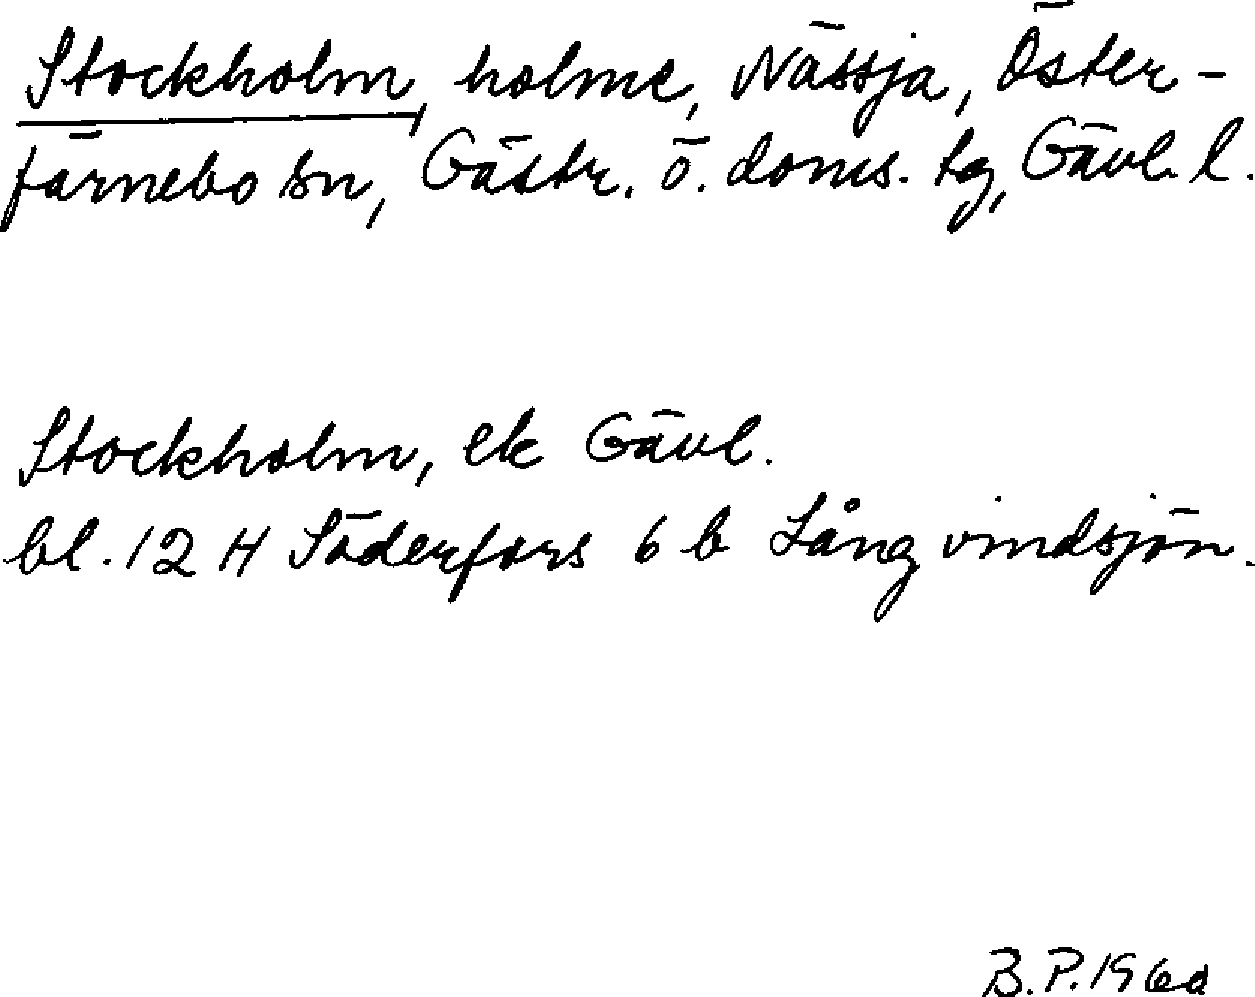 Stockholm, holme, Nässja, Öster-
färnebo sn, Gästr. ö. doms. tg, Gävl. l.
Stockholm, ek Gävl.
bl. 12 H Söderfors 6 b Långvindsjön.
B.P. 1960